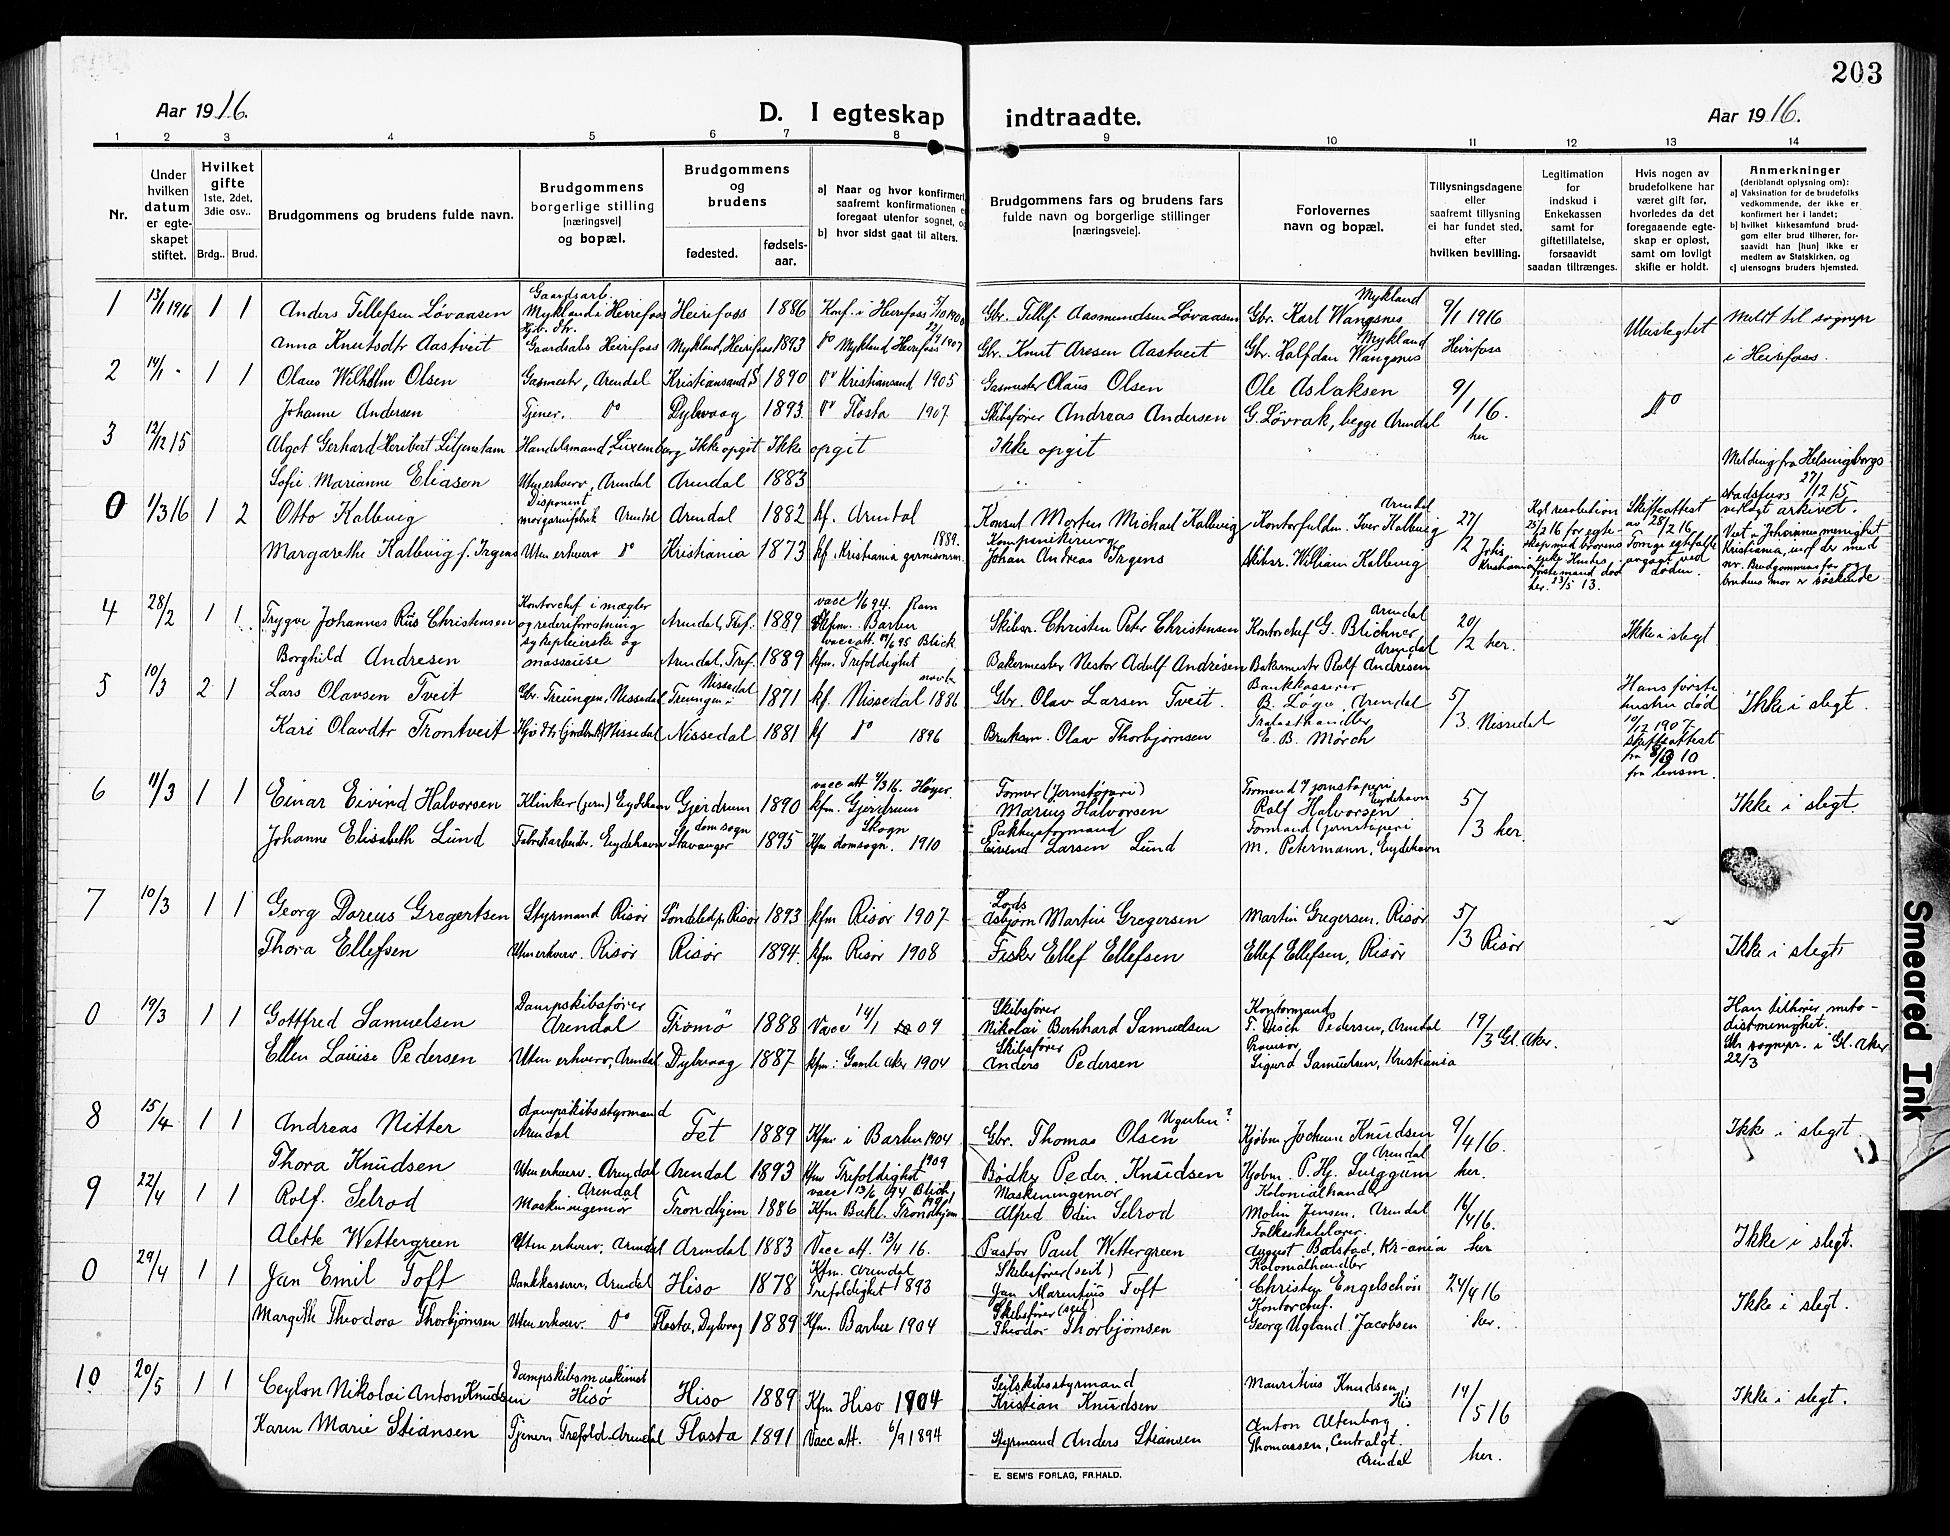 203
Aar 1916.
D. I egteskap indtraadte.
Aar 1916.
1 2 3 4 5 6 7 8 9 10 11 12 13 14
Nr.
Under hvilken datum er egteskapet stiftet.
Hvilket gifte 1ste, 2det, 3die osv..
Brdg.. Brud.
Brudgommens og brudens fulde navn.
Brudgommens borgerlige stilling [næringsvei] og bopæl.
Brudgommens og brudens
fødested.
fødselsaar.
a) Naar og hvor konfirmert, saafremt konfirmationen er foregaat utenfor sognet, og
b) hvor sidst gaat til alters.
Brudgommens fars og brudens fars fulde navn og borgerlige stillinger [næringsveie].
Forlovernes navn og bopæl.
Tillysningsdagene eller saafremt tillysning ei har fundet sted, efter hvilken bevilling.
Legitimation for indskud i Enkekassen samt for giftetillatelse, forsaavidt saadan tiltrænges.
Hvis nogen av brudefolkene har været gift før, hvorledes da det foregaaende egteskap er opløst, samt om lovligt skifte er holdt.
Anmerkninger (deriblandt oplysning om):
a) Vaksination for de brudefolks vedkommende, der ikke er konfirmert her i landet;
b) hvilket kirkesamfund brudgom eller brud tilhører, forsaavidt han [hun] ikke er medlem av Statskirken, og
c) utensogns bruders hjemsted.
1 13/1 1916 1 1 Anders Tellefsen Løvaasen Gaardsarb. Mykland i Heirefoss Heirefoss 1886 Konf. i Heirefoss 5/10 1900 Gbr. Tellef Aasmundsen Løvaasen Gbr. Karl Wangsnes Mykland 9/1 1916 Heirefoss Ubeslegtet Meldt til sognepr. i Heirefoss.
Anna Knutsdtr Aastveit Gaardsarb. Heirefoss Mykland, Heirefoss 1893 do Mykland Heirefoss 1907 Gbr. Knut Aresen Aastveit Gbr. Halfdan Wangsnes Mykland
2 14/1 - 1 1 Olaus Wilhelm Olsen Gasmestr, Arendal Kristiansand S 1890 do Kristiansand 1905 Gasmester Olaus Olsen Ole Aslaksen 9/1 16. her do
Johanne Andersen Tjener. do Dybvaag 1893 do Flosta 1907 Skibsfører Andreas Andersen G. Løvrak, begge Arendal
3 12/12 15 Algot Gerhard Heribert Liljenstam Handelsmand, Luxemburg Ikke opgit Ikke opgit Ikke opgit
Sofie Marianne Eliasen Uten erhverv, Arendal Arendal 1883 " Melding fra Helsingborgs stadsfors 27/12 15 vedlagt arkivet.
0 1/3 16 1 2 Otto Kallevig Disponent morgarnfabrik Arendal Arendal 1882 kf. Arendal Konsul Morten Michael Kallevig Kontorfuldm. Iver Kallevig Arendal 27/2 Johs. Kristiania Kgl. resolution 25/2 16 for egteskap med brorens enke. Hendes første mand død her. 13/5 13. Skifteattest av 28/2 16
Margarethe Kallevig f. Irgens Uten erhverv do Kristiania 1873 kf. Kristiania garnisonsm. 1889. Kompanikirurg Johan Andreas Irgens Skibsr. William Kallevig Viet i Johannes menighet Kristiania
4 28/2 1 1 Trygve Johannes Riis Christensen Kontorchef i mægler og rederiforretning Arendal, Tref. 1889 vacc 1/6 94. Ram kfm. Barbu Skibsr. Christen Peter Christensen Kontorchef G. Blichner Arendal 20/2 her. Ikke i slegt
Borghild Andresen sykepleierske og massøise Arendal, Tref. 1889 vacc. att. 95 Blick kfm. Trefoldighet Bakermester Nestor Adolf Andresen Bakermestr Rolf Andresen Arendal
5 10/3 2 1 Lars Olavsen Tveit Gbr. Treungen, Nissedal Treungen i Nissedal 1871 kf. Nissedal 1886 Gbr. Olav Larsen Tveit. Bankkasserer B. Løgo, Arendal 5/3 Nissedal Hans første hustru død 10/12 1907. Skifteattest fra 8/3 10 fra lensm. Ikke i slegt.
Kari Olavdtr Trontveit Nissedal Nissedal 1881 kf do 1896 Brukem. Olav Thorbjørnsen Trælasthandler E. B. Mørch
6 11/3 1 1 Einar Eivind Halvorsen Klinker (jern) Eydehavn Gjerdrum 1890 vacc att 4/3 16. Høyer. kfm. Gjerdrum Former (Jernstøperi) Marius Halvorsen Formand Jernstøperi Rolf Halvorsen Eydehavn 5/3 her. Ikke i slegt.
Johanne Elisabeth Lund Fabrikarbeider. Eydehavn domsogn Stavanger 1895 Kfm domsogn. 1910 Pakhusformand Eivind Larsen Lund Formand (jernstøperi M. Petermann, Eydehavn
7 10/3 1 1 Georg Doreus Gregertsen Styrmand Risør Søndeled pr Risør 1893 kfm Risør 1907 Lods Asbjørn Martin Gregersen Martin Gregersen. Risør 5/3 Risør
Thora Ellefsen Uten erhverv. Risør Risør 1894 kfm Risør 1908 Fisker Ellef Ellefsen Ellef Ellefsen, Risør Ikke i slegt
0 19/3 1 1 Gottfred Samuelsen Dampskibsfører Arendal Tromø 1888 Vacc 14/1 09 Skibsfører Nikolai Bernhard Samuelsen Kontormand Pedersen, Arendal 19/3 Gl. Aker. Han tilhører metodistmenighet. sognepr. i Gl. Aker 22/3
Ellen Louise Pedersen Uten erhverv, Arendal Dybvaag 1887 kfm: Gamle Aker 1904 Skibsfører Anders Pedersen Provisor Sigurd Samuelsen, Kristiania
8 15/4 1 1 Andreas Nitter Dampskibsstyrmand Arendal Fet 1889 Kfm. i Barbu 1904 Gbr. Thomas Olsen Kjøbm. Jochum Knudsen Arendal 9/4 16. her. Ikke i slegt.
Thora Knudsen Uten erhverv. Arendal Arendal 1893 kfm Trefoldighet 1909 Bødker Peder Knudsen Kjøbm. P. Hj. Surggum
9 22/4 1 1 Rolf. Selrod Maskiningeniør Arendal Trondhjem 1886 vacc 13/6 94 Blich Kfm Bakl. Trondhjem 1901 Maskiningeniør Alfred Odin Selrod Kolonialhandler Molin Jensen, Arendal 16/4 16. her
Alette Wettergreen Uten erhverv, Arendal Arendal 1883 Vacc att. 13/4 16. Pastor Paul Wettergreen August Balstad, Kr-ania Ikke i slegt.
0 29/4 1 1 Jan Emil Toft Bankkasserer, Arendal Hisø 1878 Kfm. Arendal Trefoldighet 1893 Skibsfører (seil) Jan Marentius Toft Kolonialhandler Christen Engelschøn 24/4 16 her. Ikke i slegt.
Margith Theodora Thorbjørnsen Uten erhverv do Flosta, Dybvaag 1889 Kfm. Barbu 1904 Skibsfører (seil) Theodor Thorbjørnsen Kontorchef. Georg Ugland Jacobsen
10 20/5 1 1 Ceylon Nikolai Anton Knudsen Dampskibsmaskinist Hisø Hisø 1889 Kfm Hisø 1904 Seilskibsstyrmand Kristian Knudsen Mauritius Knudsen, His 14/5 16 her. Ikke i slegt.
Karen Marie Stiansen Tjener, Trefold. Arendal Flosta 1891 Vacc att. 6/9 1894 Styrmand Anders Stiansen Anton Altenborg Thomassen, Centralgt. Arendal
E. SEM'S FORLAG, FR.HALD.
Smeared Ink